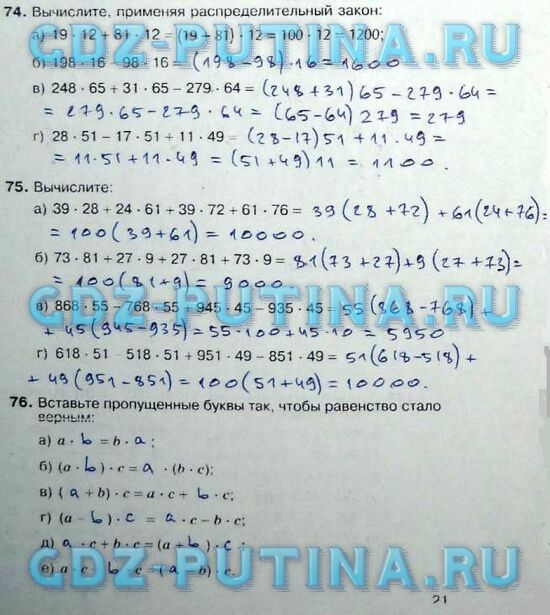 74. Вычислите, применяя распределительный закон:
GDZ-PUTINA.RU
а) 19 · 12 + 81 · 12 = (19 + 81) · 12 = 100 · 12 = 1200;
б) 198 · 16 – 98 · 16 = (198–98)·16=1600
в) 248 · 65 + 31 · 65 – 279 · 64 = (248+31)65–279·64=
= 279·65–279·64=(65–64)279=279
г) 28 · 51 – 17 · 51 + 11 · 49 = (28–17)51+11·49=
=11·51+11·49=(51+49)11=1100.
75. Вычислите:
а) 39 · 28 + 24 · 61 + 39 · 72 + 61 · 76 = 39(28+72)+61(24+76)=
=100(39+61)=10000.
б) 73 · 81 + 27 · 9 + 27 · 81 + 73 · 9 = 81(73+27)+9(27+73)=
=100(81+9)=9000.
GDZ-PUTINA.RU
в) 868 · 55 – 768 · 55 + 945 · 45 – 935 · 45 = 55(868–768)+
+45(945–935)=55·100+45·10=5950
г) 618 · 51 – 518 · 51 + 951 · 49 – 851 · 49 = 51(618–518)+
+49(951–851)=100(51+49)=10000.
76. Вставьте пропущенные буквы так, чтобы равенство стало
верным:
а) a · b = b · a;
б) (a · b) · c = a · (b · c);
в) (a + b) · c = a · c + b · c;
г) (a – b) · c = a · c – b · c;
д) a · c + b · c = (a + b) · c;
GDZ-PUTINA.RU
е) a · c – b · c = (a – b) · c.
21